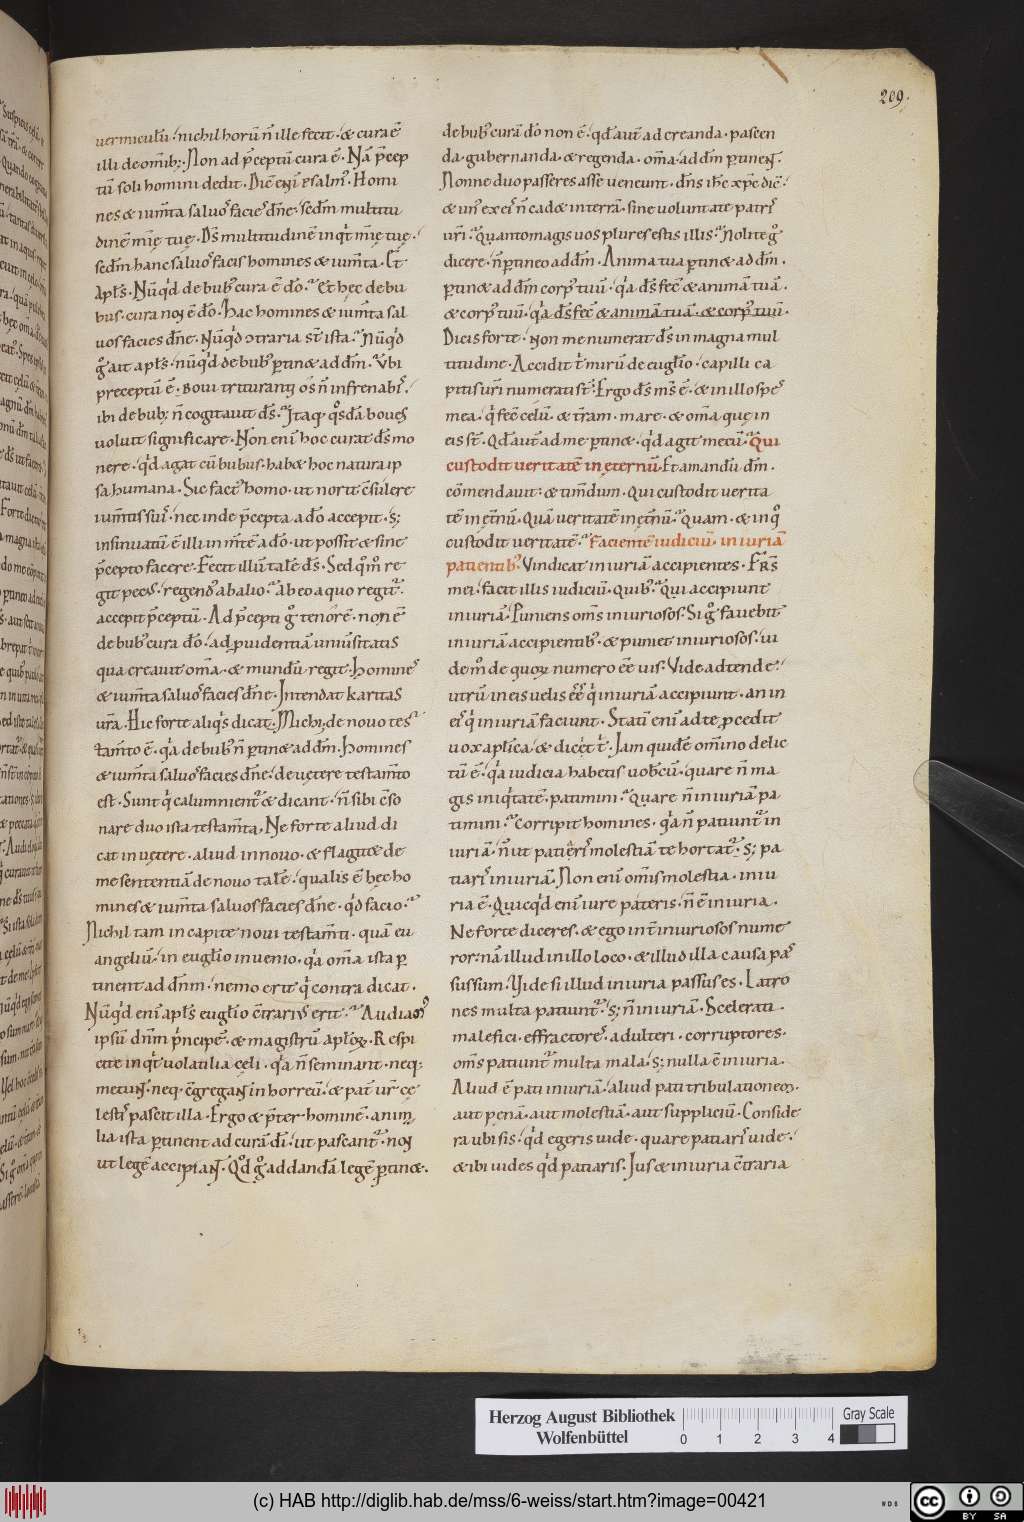 209.
uermiculū. nichil horū n̄ ille fecit. & cura ē
illi de omīb;. Non ad p̄ceptū cura ē. Nā p̄cep
tū soli homini dedit. Dicē eni psalm᷒. Homi
nes & ium̄ta saluos facies dn̄e. sedm multitu
dinē mīę tuę. Ds̄ multitudinē inqͥt mīę tuę.
sedm hanc saluos facis homines & ium̄ta. Et̄
apls̄. Nūqͥd de bubus cura ē do̅. Et hęc de bu
bus. cura non ē do̅. Hac homines & ium̄ta sal
uos facies dn̄e. Nūqͥd ↄtraria st̄ ista. Nūqͥd
gͦ ait apls̄. nūqͥd de bubus ꝑtin& ad dm̄. Vbi
preceptū ē. Boui trituranti os n̄ infrenabis.
ibi de bub; n̄ cogitauit ds̄. Itaqꝫ qͦsdā boues
uoluit significare. Non eni hoc curat ds̄ mo
nere. qͥd agat cū bubus. hab& hoc natura ip
sa humana. Sic fact᷒ homo. ut norit c̄sulere
ium̄tis suis. nec inde p̄cepta a do̅ accepit. s;
insinuatū ē illi in m̄te a do̅. ut possit & sine
p̄cepto facere. Fecit illū talē ds̄. Sed qͦm̄ re
git pecus. regend᷒ ab alio. Ab eo a quo regit᷑.
accepit p̄ceptū. Ad p̄cepti gͦ tenorē. non ē
de bubus cura do̅. ad ꝓuidentiā uniūsitatis
qua creauit om̄a. & mundū regit. homines
& ium̄ta saluos facies dn̄e. Intendat karitas
ur̄a. Hic forte aliqͥs dicat. Michi de nouo tes
tam̄to ē. qͥa de bubus n̄ ꝑtin& ad dm̄. Homines
& ium̄ta saluos facies dn̄e. de uetere testam̄to
est. Sunt qͥ calumnient᷑ & dicant. n̄ sibi c̄so
nare duo ista testam̄ta. Ne forte aliud di
cat in uetere. aliud in nouo. & flagit& de
me sententiā de nouo talē. qualis ē hęc ho
mines & ium̄ta saluos facies dn̄e. qͥd facio.
Nichil tam in capite noui testam̄ti. quā eu
angeliū. in euglīo inuenio. qͥa om̄a ista ꝑ
tinent ad dn̄m. nemo erit qͥ contra dicat.
Nūqͥd eni apls̄ euglīo c̄trarius erit. Audiam᷒
ipsū dn̄m p̄ncipē. & magistrū aplōꝝ. Respi
cite inqͥt uolatilia cęli. qͥa n̄ seminant. neqꝫ
metunt. neqꝫ c̄gregant in horreū. & pat᷑ ur̄ cę
lestis pascit illa. Ergo & p̄ter hominē. anim
lia ista ꝑtinent ad curā di̅. ut pascant᷑. non
ut legē accipiant. Qͦd gͦ ad dandā legē ꝑtin&.
de bubus curā do̅ non ē. qd̄ aut̄ ad creanda. pascen
da. gubernanda. & regenda. om̄a. ad dm̄ ꝑtinent.
Nonne duo passeres asse ueneunt. dn̄s ihc̄ xpc̄ dic̄.
& un᷒ ex eis n̄ cad& in terrā. sine uoluntate patris
ur̄i. Quanto magis uos plures estis illis. Nolite gͦ
dicere. n̄ ꝑtineo ad dm̄. Anima tua ꝑtin& ad dm̄.
ꝑtin& ad dm̄ corp᷒ tuū. qͥa ds̄ fec̄ & animā tuā.
& corp᷒ tuū. qͥa ds̄ fec̄ & animā tuā. & corp᷒ tuū.
Dicis forte. non me numerat ds̄ in magna mul
titudine. Accidit t̄ mirū de euglīo. capilli ca
pitis ur̄i numerati st̄. Ergo ds̄ ms̄ ē. & in illo spes
mea. qͥ fec̄ celū. & tr̄am. mare. & om̄a quę in
eis st̄. Qd̄ aut̄ ad me ꝑtin&. qͥd agit mecū. Qui
custodit ueritatē in ęternū. Et amandū dm̄.
com̄endauit. & tim̄dum. Qui custodit uerita
tē in et̄nū. Quā ueritatē in et̄nū. Quam. & in qͦ
custodit ueritatē. Facientē iudiciū. iniuriā
patientibus. Vindicat iniuriā accipientes. Frs̄
mei. facit illis iudiciū. Quibus. Qui accipiunt
iniuriā. Puniens om̄s iniuriosos. Si gͦ fauebit
iniuriā accipientibus. & puniet iniuriosos. ui
de m̊ de quoꝝ numero ēē uis. Vide adtende.
utrū in eis uelis ēē qͥ iniuriā accipiunt. an in
eis qͥ iniuriā faciunt. Statī eni ad te ꝓcedit
uox aplīca. & dicet t̄. Iam quidē om̄ino delic
tū ē. qͥa iudicia habetis uobcū. quare n̄ ma
gis iniqͥtatē. patimini. Quare n̄ iniuriā pa
timini. Corripit homines. qͥa n̄ patiunt᷑ in
iuriā. n̄ ut patieris molestiā te hortat᷑. s; pa
tiaris iniuriā. Non eni om̄is molestia. iniu
ria ē. Quicqͥd eni iure pateris. n̄ ē iniuria.
Ne forte diceres. & ego int̄ iniuriosos nume
ror. nā illud in illo loco. & illud illa causa pas
sus sum. Vide si illud iniuria passus es. Latro
nes multa patiunt᷑. s; n̄ iniuriā. Scelerati.
malefici. effractores. adulteri. corruptores.
om̄s patiunt᷑ multa mala. s; nulla ē iniuria.
Aliud ē pati iniuriā. aliud pati tribulationem.
aut penā. aut molestiā. aut suppliciū. Conside
ra ubi sis. qͥd egeris uide. quare patiaris uide.
& ibi uides qͥd patiaris. Ius & iniuria c̄traria
Herzog August Bibliothek
Wolfenbüttel
0 1 2 3 4
Gray Scale
(c) HAB http://diglib.hab.de/mss/6-weiss/start.htm?image=00421
WDB
cc BY SA